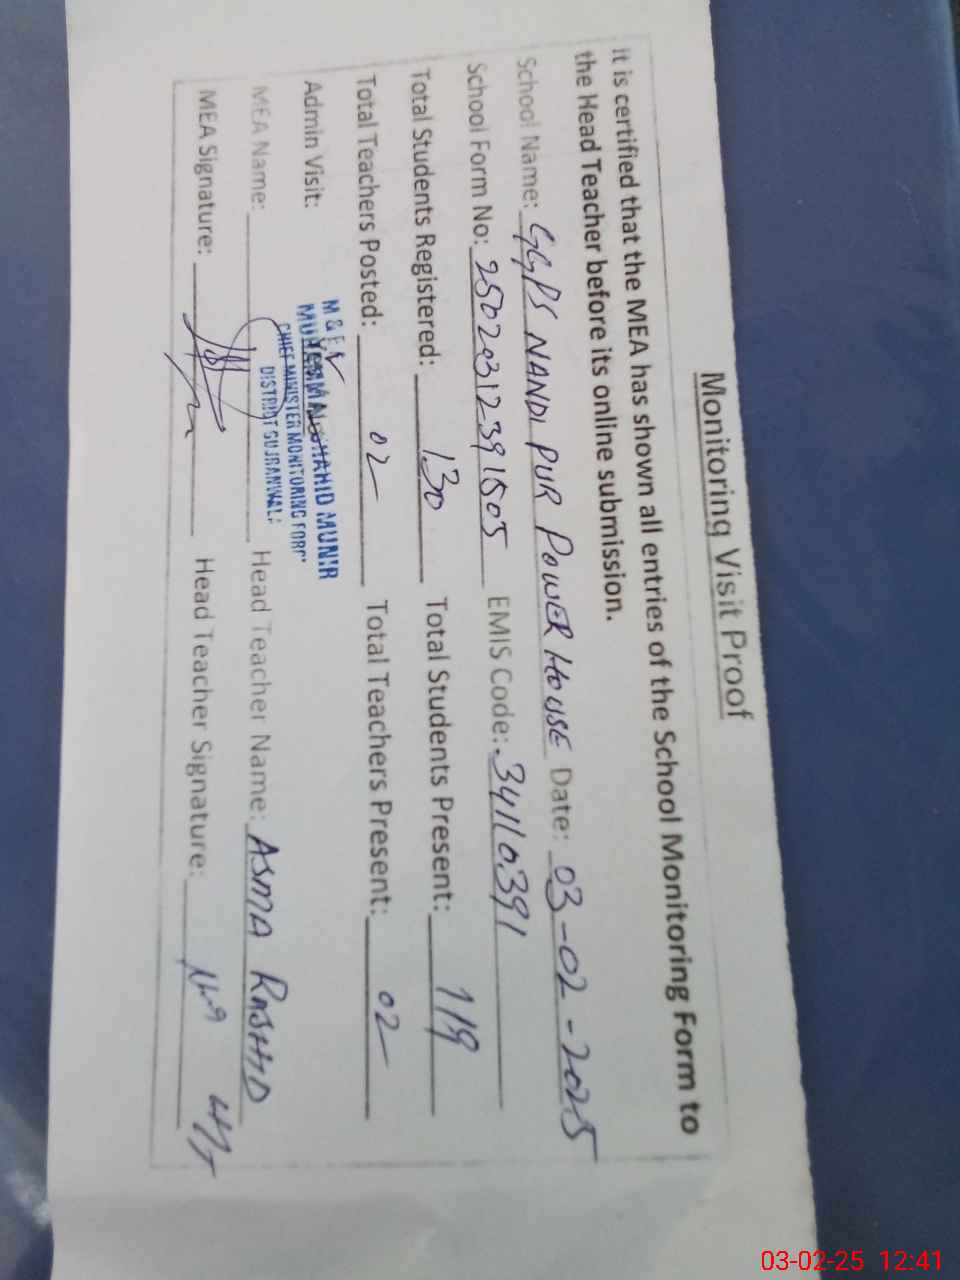 Monitoring Visit Proof
It is certified that the MEA has shown all entries of the School Monitoring Form to
the Head Teacher before its online submission.
School Name: GGPS NANDI PUR POWER HOUSE Date: 03-02-2025
School Form No: 2502031239 1505 EMIS Code: 34110391
Total Students Registered: 130 Total Students Present: 119
Total Teachers Posted: 02 Total Teachers Present: 02
Admin Visit:
M & E
MUHAMMAD SHAHID MUNIR
CHIEF MINISTER MONITORING FORC
DISTRICT GUJRANWALA
MEA Name: Head Teacher Name: ASMA RASHID
MEA Signature: Head Teacher Signature:
03-02-25 12:41